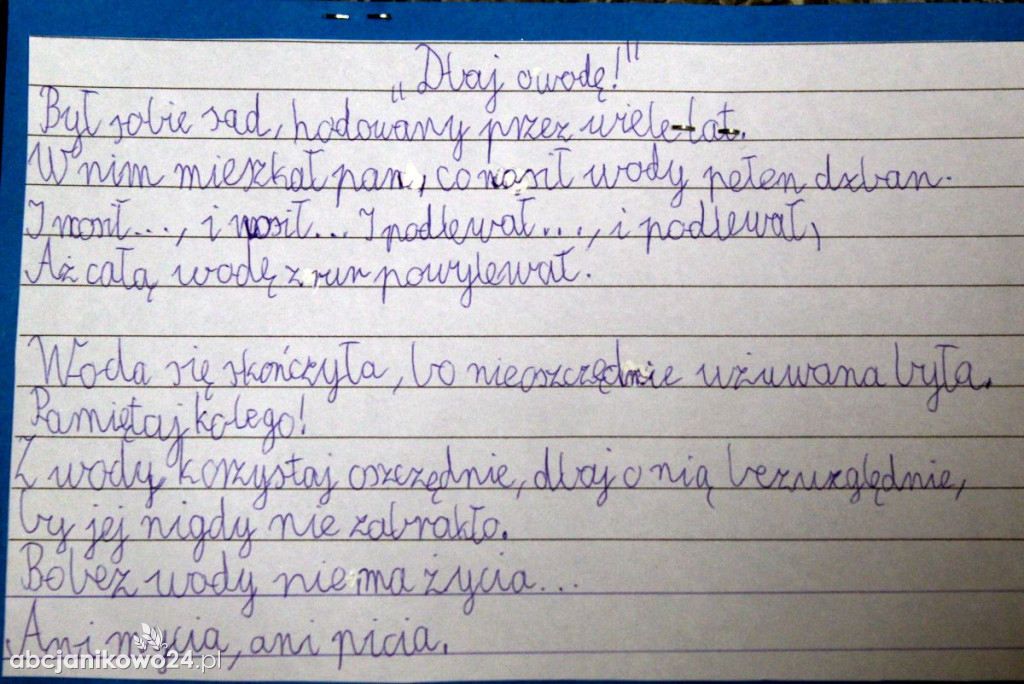 „Dbaj o wodę!"
Był sobie sad, hodowany przez wiele lat.
W nim mieszkał pan, co nosił wody pełen dzban.
I nosił..., i nosił... I podlewał..., i podlewał,
Aż całą wodę z rur powylewał.
Woda się skończyła, bo nieoszczędnie używana była.
Pamiętaj kolego!
Z wody korzystaj oszczędnie, dbaj o nią bezwzględnie,
by jej nigdy nie zabrakło.
Bo bez wody nie ma życia...
Ani mycia, ani picia.
abcjanikowo24.pl